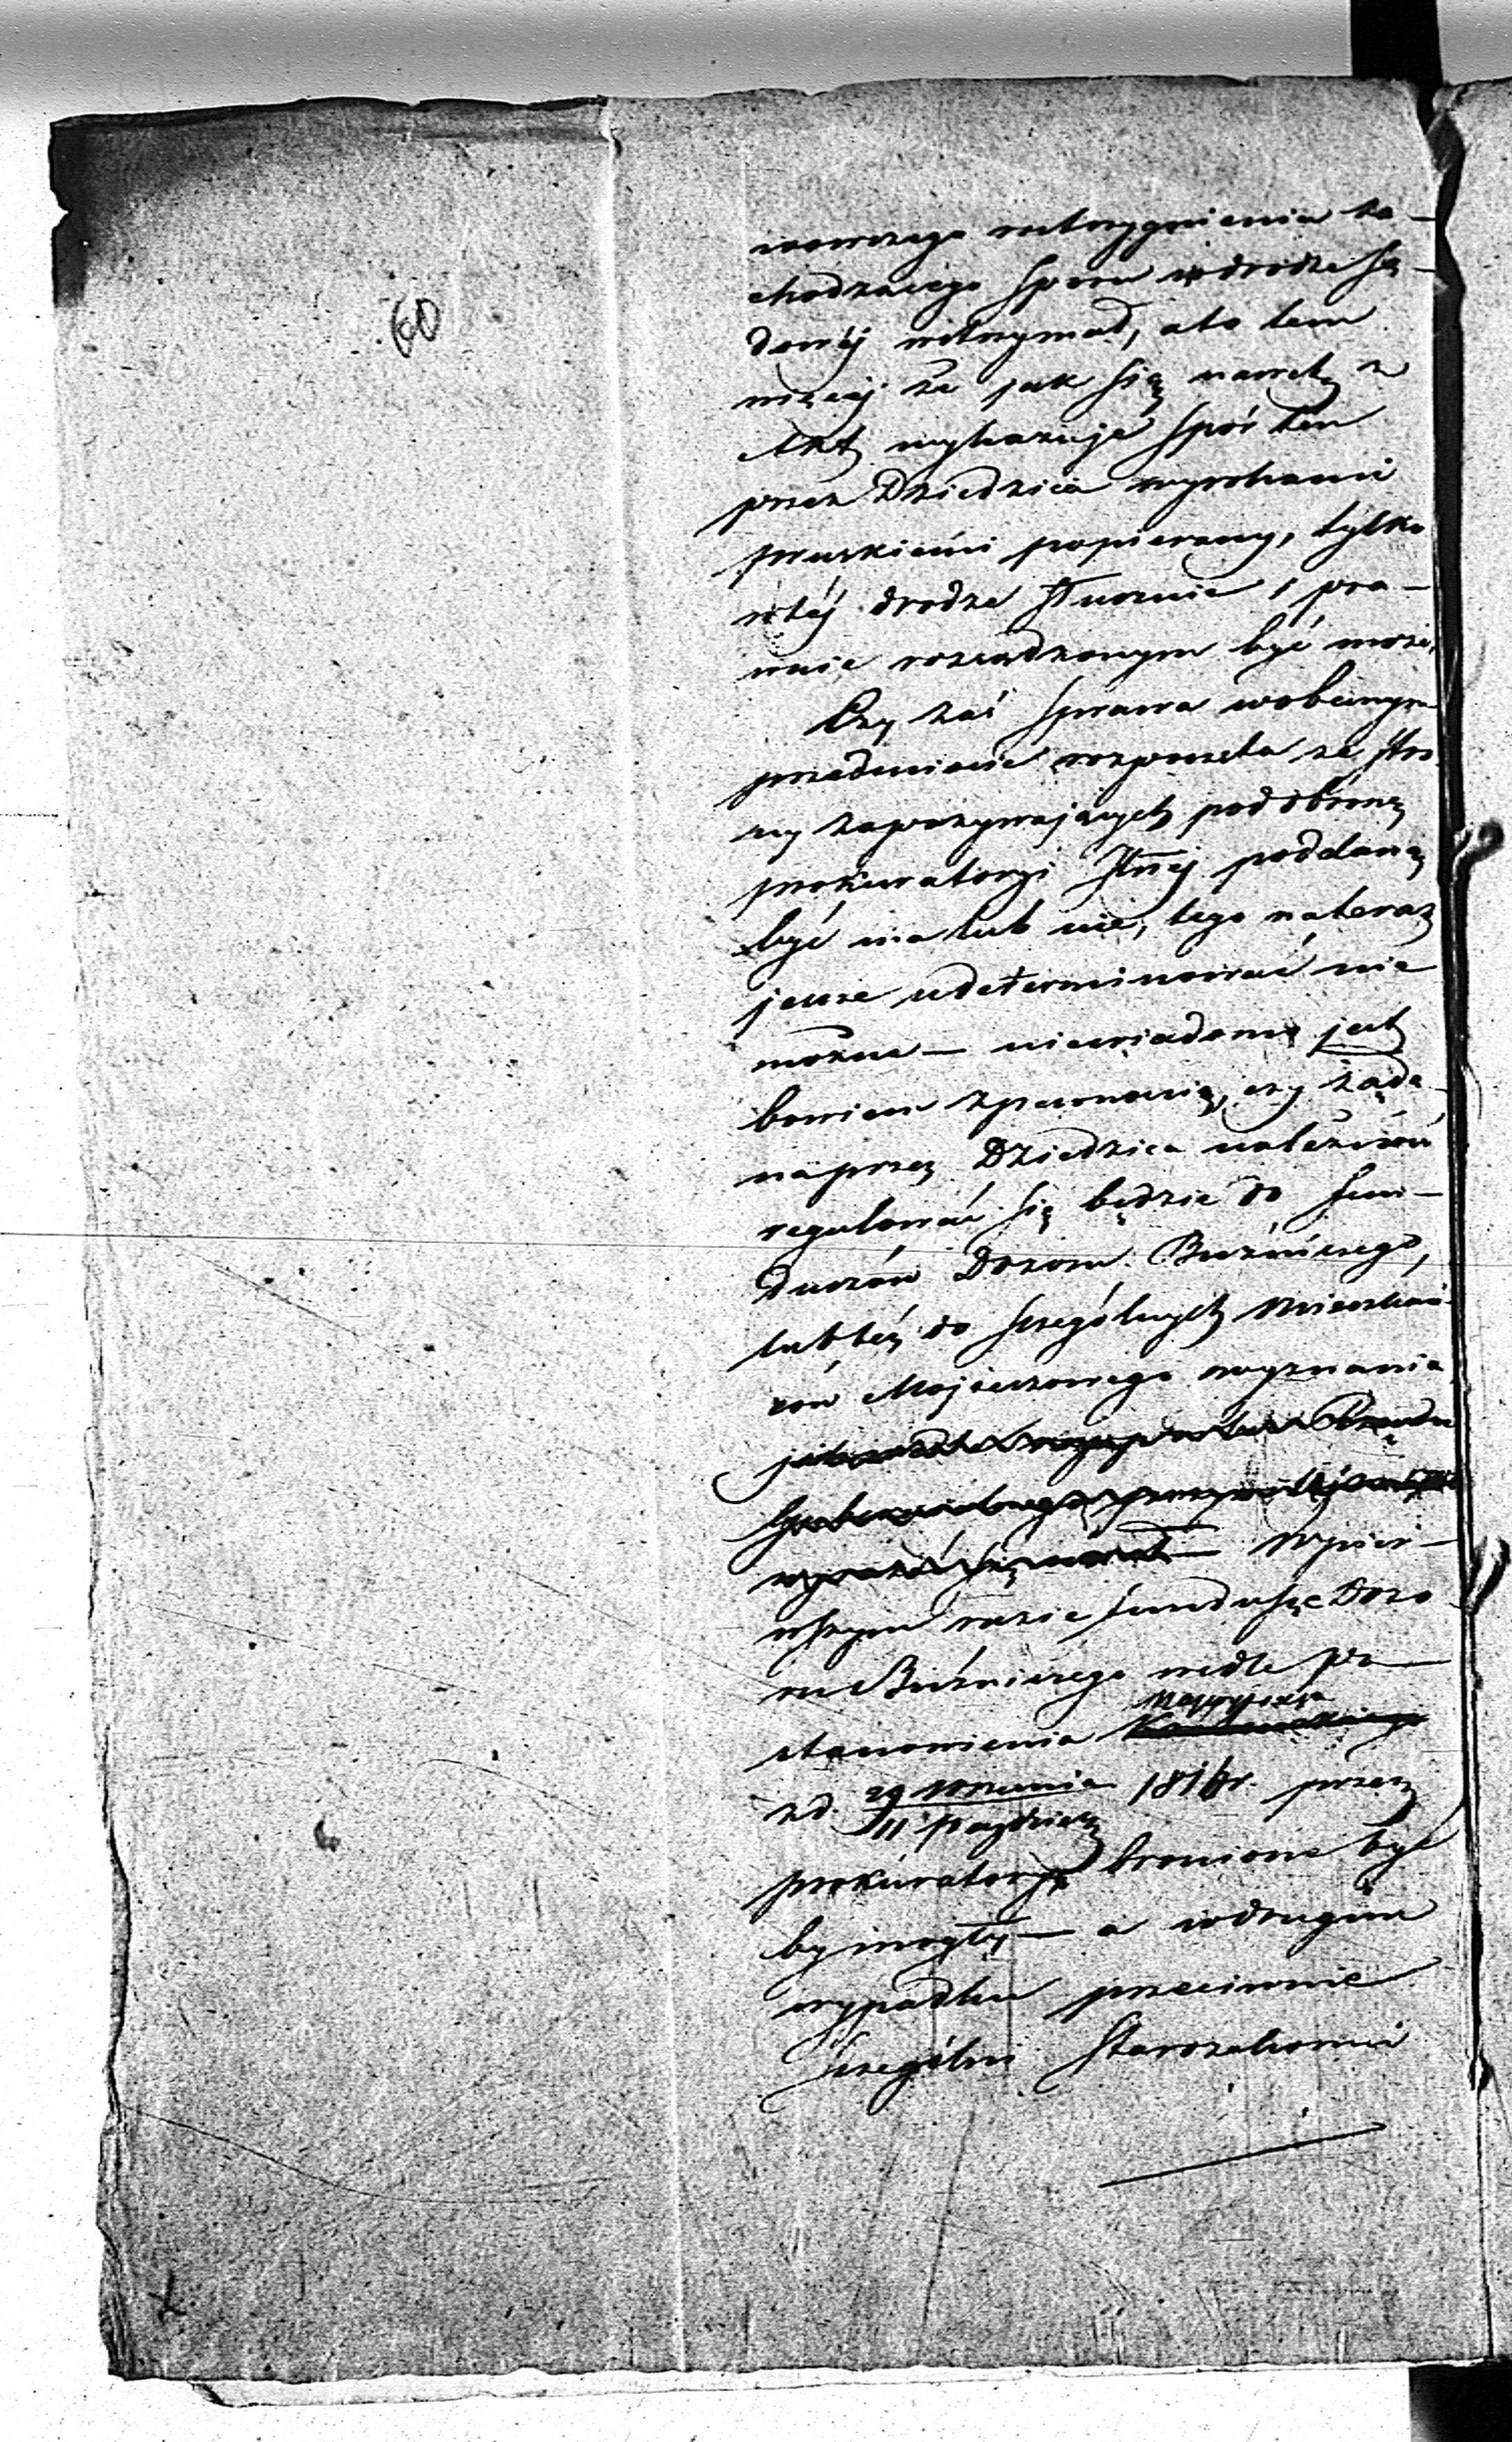 60
rozstrzygnienia za-
chodzącego sporu w drodze Są-
dowéj wstrzymać, a to tem
więcéj że jak się nawet z
Akt wykazuje spór ten
przez Dziedzica wyrokami
pruskiemi popierany, tylko
w téj drodze słusznie i pra-
wnie rozsądzonym być może,
Czy zaś sprawa w obecnym
przedmiocie rozpoczęta ze stro
ny zapozywających pod obronę
prokuratoryi Jlnéj poddaną
być ma lub nie, tego na teraz
jeszcze udeterminować nie
można — niewiadomo jest
bowiem z pewnością, czy żąda
na przez Dziedzica należność
regulować się będzie do fun-
duszów Dozoru Bóżniczego,
lub téż do szczególnych Mieszkań
ców Mojżeszowego wyznania
W pier-
wszym razie fundusze Dozo
ru Bóżniczego wedle po-
stanowienia
z d. 29 Września 1816 r. przez
11 Paździer
prokuratoryą bronione być
by mogły — a w drugim
wypadku przeciwnie
szczególni Starozakonni